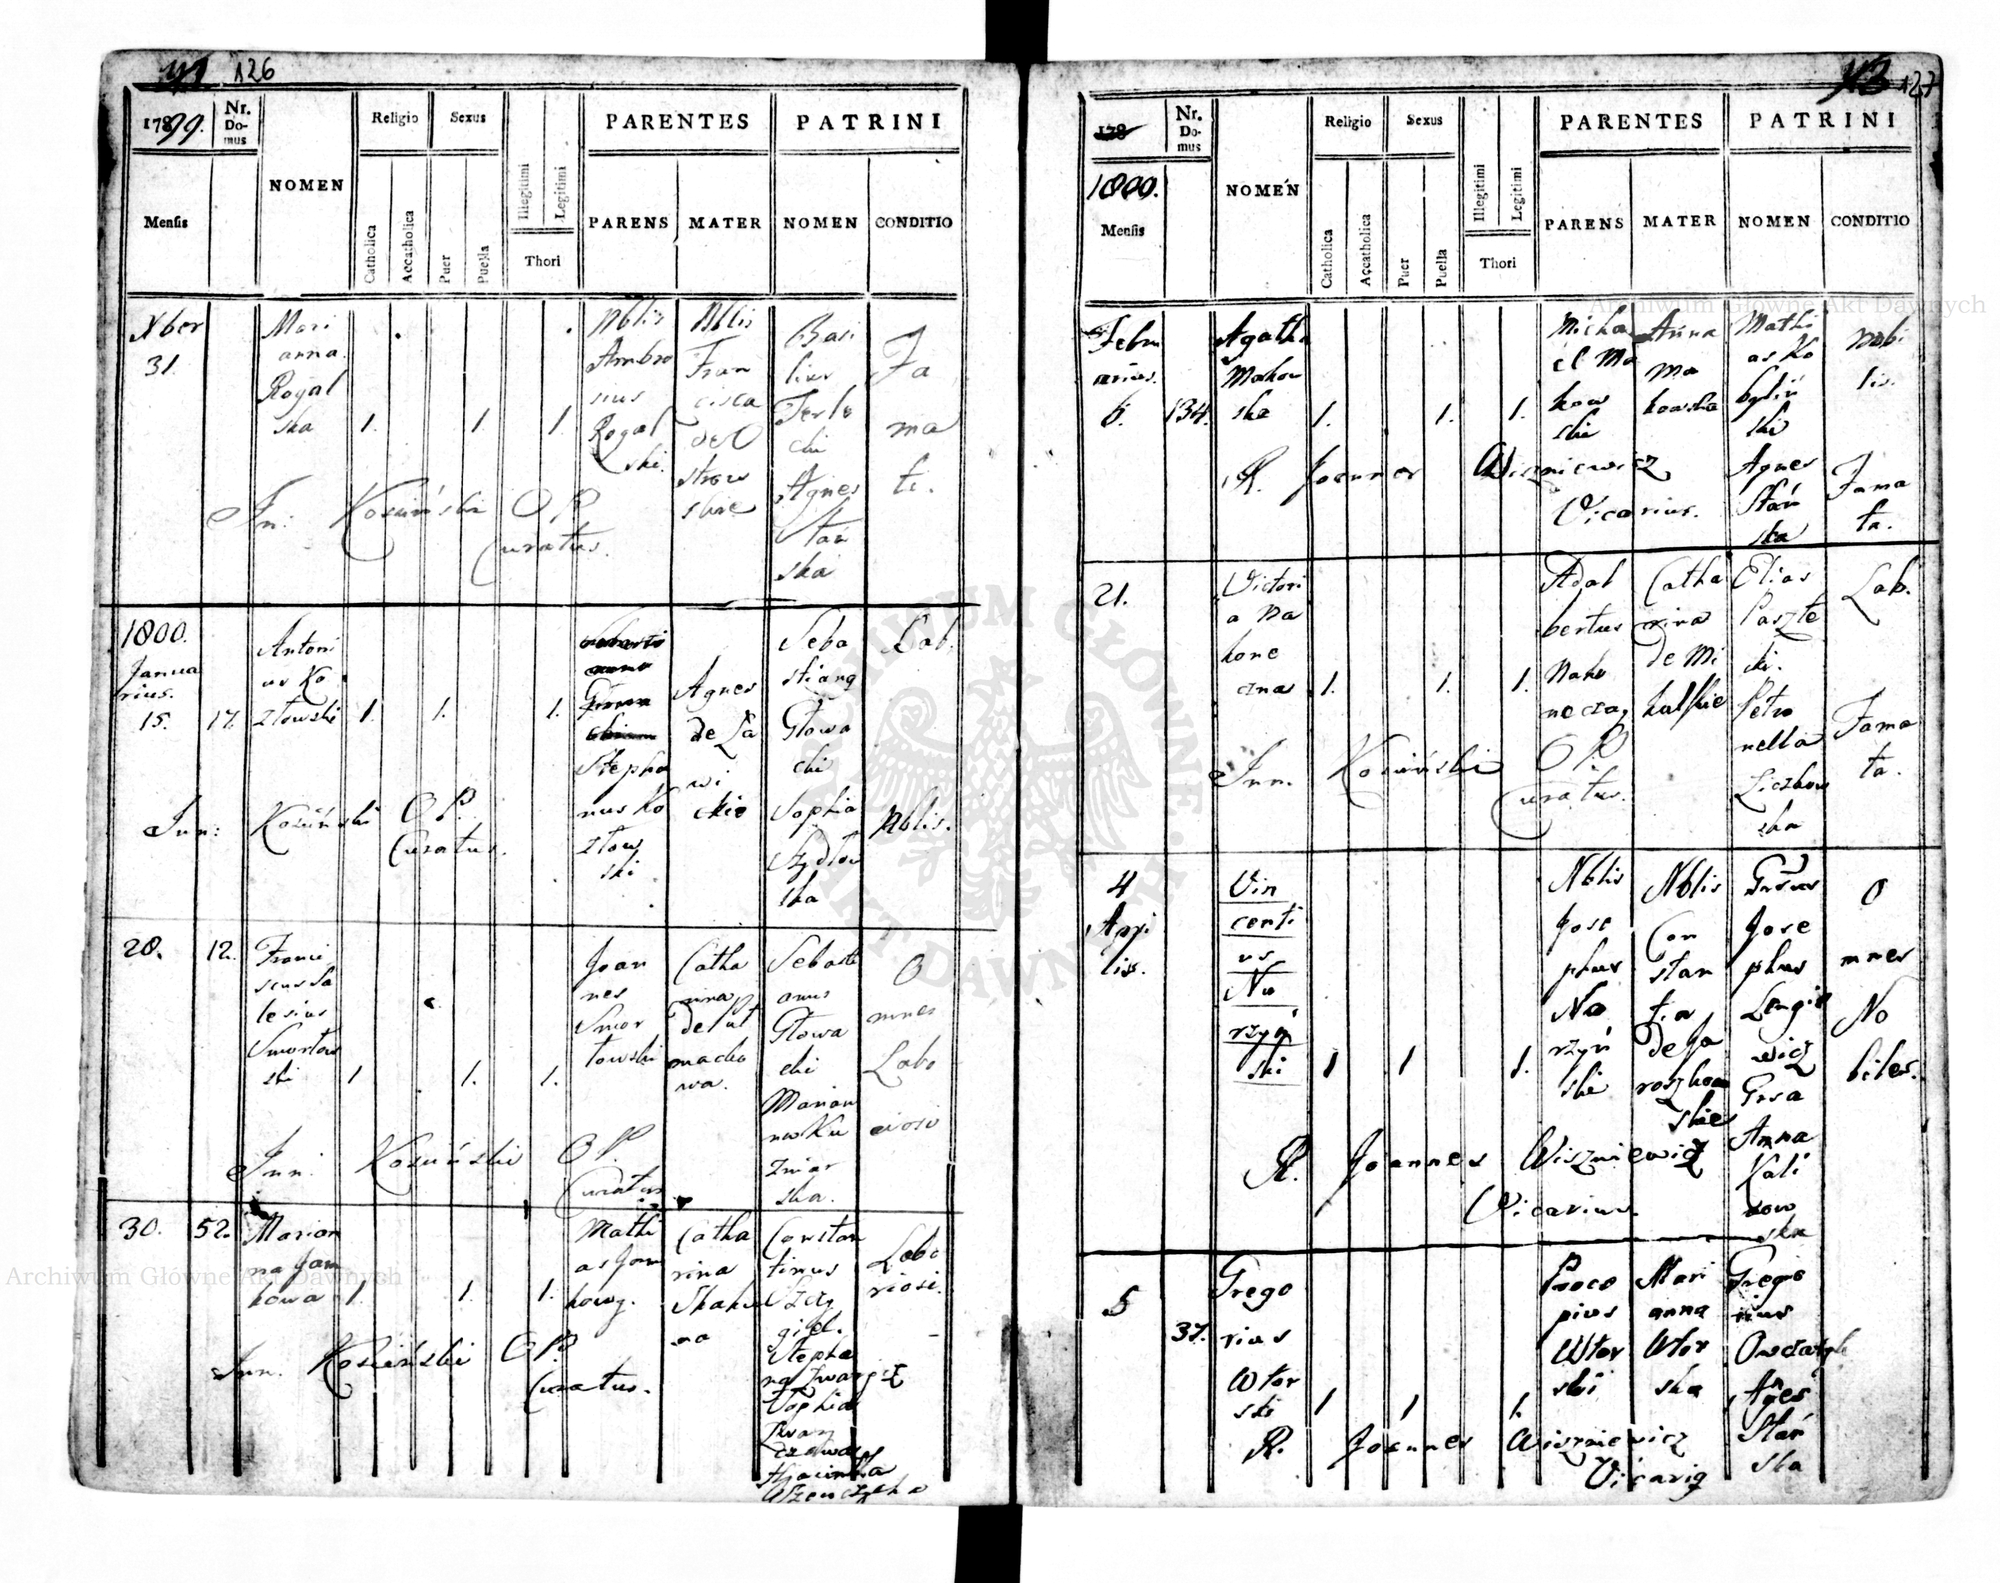 126
1799.
Nr. Do- mus
NOMEN
Religio
Sexus
Illegitimi
Legitimi
Thori
PARENTES
PATRINI
Mensis
Catholica
Accatholica
Puer
Puella
PARENS
MATER
NOMEN
CONDITIO
Xber
31.
Mari
anna
Rogal
ska
1.
1.
1.
Nblis
Ambro
sius
Rogal
ski.
Nblis
Fran
cisca
de O
strow
skie
Basi
lius
Terle
cki
Agnes
Stań
ska
Fa
ma
ti.
Inn: Kosiński O.P.
Curatus.
1800.
Janua
rius.
15.
17.
Antoni
us Ko
złowski
1.
1.
1.
Stepha
nus Ko
złow
ski
Agnes
de Ła
wi
ckie
Seba
stianq
Głowa
cki
Sophia
Szydłow
ska
Lab.
Nblis.
Inn: Kosiński O.P.
Curatus.
28.
12.
Franci
scus Sa
lesius
Smortow
ski
1
1.
1.
Joan
nes
Smor
towski
Catha
rina
de Pul
macho
wa.
Sebasti
anus
Głowa
cki
Marian
na Ku
zniar
ska.
O
mnes
Labo
riosi
Inn: Kosiński O.P.
Curatus.
30.
52.
Marian
na Jan
kowa
1.
1.
1.
Mathi
as Jan
kowy.
Catha
rina
Skaku
na
Constan
tinus
Stepha
Sophia
Iwan
Hyacintha
Labo
riosi.
Inn. Kosiński O.P.
Curatus.
127
178
1800.
Mensis
Nr. Do- mus
NOMEN
Religio
Sexus
Illegitimi
Legitimi
Thori
PARENTES
PATRINI
Catholica
Accatholica
Puer
Puella
PARENS
MATER
NOMEN
CONDITIO
Febru
arius.
6.
134.
Agatha
Makow
ska
1.
1.
1.
Micha
el Ma
kow
ski
Anna
Ma
kowska
Mathi
as Ko
byliń
ski
Agnes
Stań
ska
nobi
lis.
Fama
ta.
R. Joannes Wiszniewicz
Vicarius.
21.
Victori
a Na
kone
czna
1.
1.
1.
Adal
bertus
Nako
neczny
Catha
rina
de Mi
halskie
Elias
Paszte
cki.
Petro
nella
Liczkow
ska
Lab.
Fama
ta.
Inn. Kosiński O.P.
Curatus.
4
Appri
lis.
Vin
centi
us
Na
rzyń
ski
1
1
1.
Nblis
Jose
phus
Na
rzyń
ski
Nblis
Con
stan
tia
de Ja
roszkow
skie
Jose
phus
Lengie
wicz
Anna
Kali
now
ska
O
mnes
No
biles.
R. Joannes Wiszniewicz
Vicarius.
5
37.
Grego
rius
Wtor
ski
1
1
1.
Proco
pius
Wtor
ski
Mari
anna
Wtor
ska
Grego
rius
Agnes
Stań
ska
R. Joannes Wiszniewicz
Vicariq
Archiwum Główne Akt Dawnych
Archiwum Główne Akt Dawnych
ARCHIWUM GŁÓWNE AKT DAWNYCH